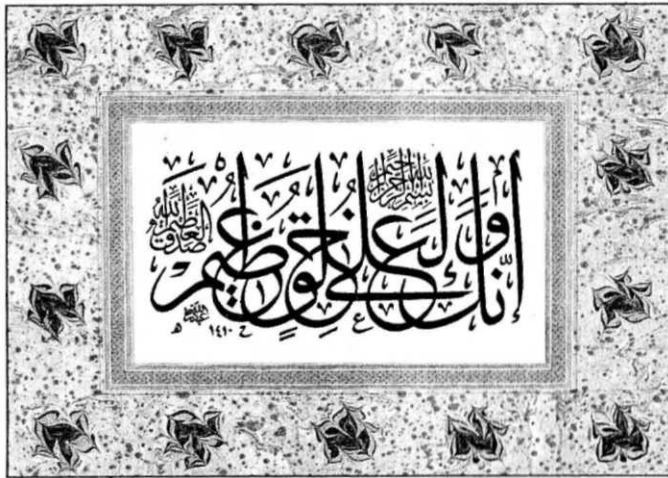 بسم الله الرحمن الرحيم
وإنك لعلى خلق عظيم
صدق الله العظيم
١٤١٠ هـ